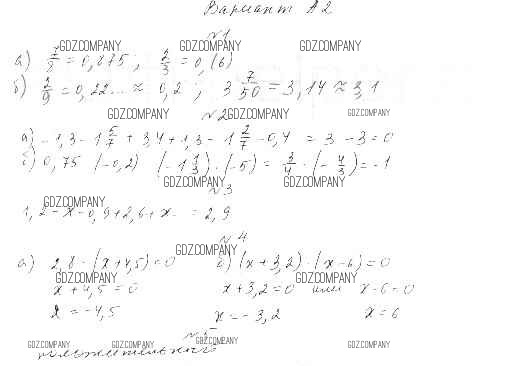 Вариант А2
№1
GDZ.COMPANY GDZ.COMPANY GDZ.COMPANY
а) 7/8 = 0,875; 2/3 = 0,(6)
б) 2/9 = 0,22... ≈ 0,2; 3 7/50 = 3,14 ≈ 3,1
GDZ.COMPANY №2 GDZ.COMPANY GDZ.COMPANY
а) -1,3 - 1 5/7 + 3,4 + 1,3 - 1 2/7 - 0,4 = 3 - 3 = 0
б) 0,75 · (-0,2) · (-1 1/3) · (-5) = 3/4 · (-4/3) = -1
GDZ.COMPANY GDZ.COMPANY
№3
GDZ.COMPANY
1,2 - x - 0,9 + 2,6 + x = 2,9
№4
GDZ.COMPANY
а) 2,8 · (x + 4,5) = 0 б) (x + 3,2) · (x - 6) = 0
GDZ.COMPANY GDZ.COMPANY
x + 4,5 = 0 x + 3,2 = 0 или x - 6 = 0
x = -4,5 x = -3,2 x = 6
№5
GDZ.COMPANY GDZ.COMPANY GDZ.COMPANY GDZ.COMPANY